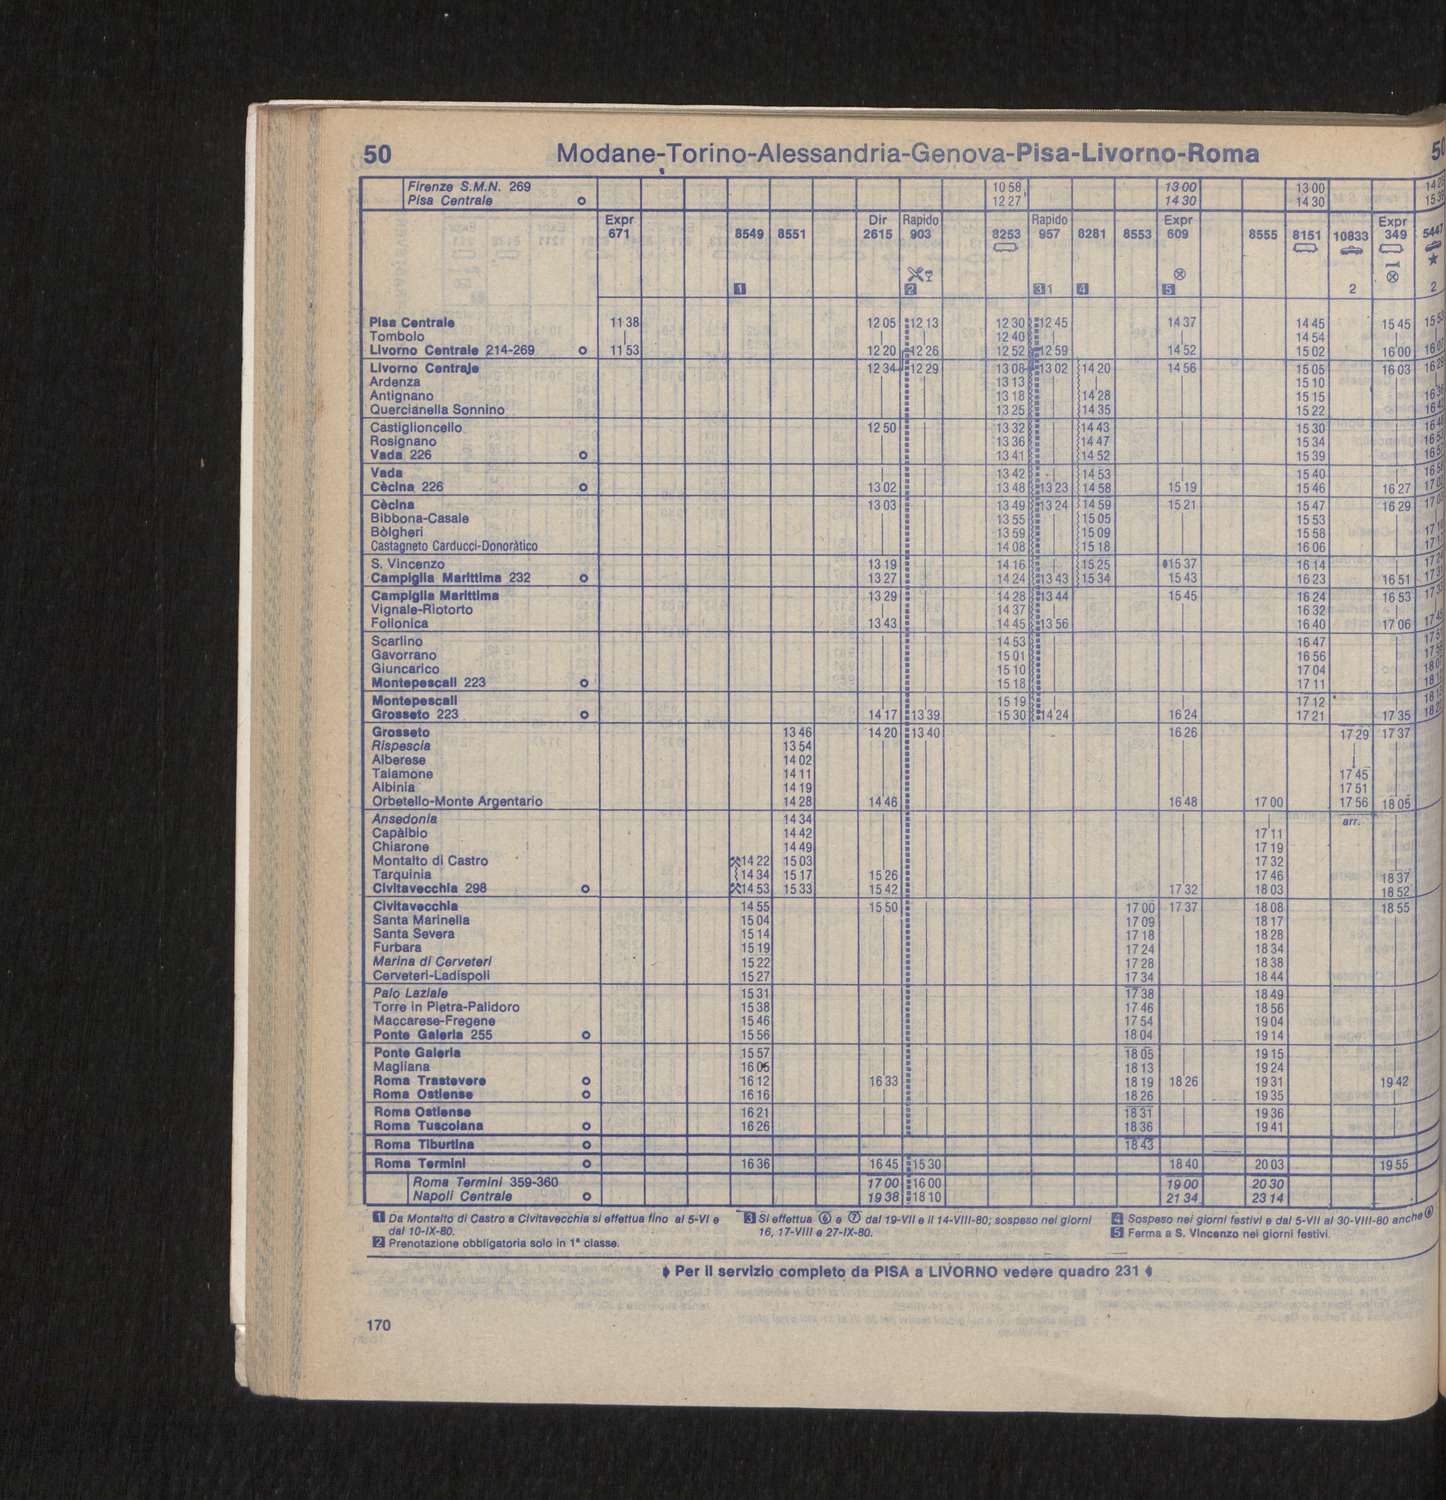 50 Modane-Torino-Alessandria-Genova-Pisa-Livorno-Roma 50
Firenze S.M.N. 269 10 58 13 00 13 00
Pisa Centrale 12 27 14 30 14 30
Expr Dir Rapido Rapido Expr Expr
671 8549 8551 2615 903 8253 957 8281 8553 609 8555 8151 10833 349 5447
1 2 3 1 4 5 2 2
Pisa Centrale 11 38 12 05 12 13 12 30 12 45 14 37 14 45 15 45
Tombolo 12 40 14 54
Livorno Centrale 214-269 11 53 12 20 12 26 12 52 12 59 14 52 15 02 16 00
Livorno Centrale 12 34 12 29 13 08 13 02 14 20 14 56 15 05 16 03
Ardenza 13 13 15 10
Antignano 13 18 14 28 15 15
Quercianella Sonnino 13 25 14 35 15 22
Castiglioncello 12 50 13 32 14 43 15 30
Rosignano 13 36 14 47 15 34
Vada 226 13 41 14 52 15 39
Vada 13 42 14 53 15 40
Cècina 226 13 02 13 48 13 23 14 58 15 19 15 46 16 27
Cècina 13 03 13 49 13 24 14 59 15 21 15 47 16 29
Bibbona-Casale 13 55 15 05 15 53
Bòlgheri 13 59 15 09 15 58
Castagneto Carducci-Donoràtico 14 08 15 18 16 06
S. Vincenzo 13 19 14 16 15 25 15 37 16 14
Campiglia Marittima 232 13 27 14 24 13 43 15 34 15 43 16 23 16 51
Campiglia Marittima 13 29 14 28 13 44 15 45 16 24 16 53
Vignale-Riotorto 14 37 16 32
Follonica 13 43 14 45 13 56 16 40 17 06
Scarlino 14 53 16 47
Gavorrano 15 01 16 56
Giuncarico 15 10 17 04
Montepescali 223 15 18 17 11
Montepescali 15 19 17 12
Grosseto 223 14 17 13 39 15 30 14 24 16 24 17 21 17 35
Grosseto 13 46 14 20 13 40 16 26 17 29 17 37
Rispescia 13 54
Alberese 14 02
Talamone 14 11 17 45
Albinia 14 19 17 51
Orbetello-Monte Argentario 14 28 14 46 16 48 17 00 17 56 18 05
Ansedonia 14 34 arr.
Capàlbio 14 42 17 11
Chiarone 14 49 17 19
Montalto di Castro 14 22 15 03 17 32
Tarquinia 14 34 15 17 15 26 17 46 18 37
Civitavecchia 298 14 53 15 33 15 42 17 32 18 03 18 52
Civitavecchia 14 55 15 50 17 00 17 37 18 08 18 55
Santa Marinella 15 04 17 09 18 17
Santa Severa 15 14 17 18 18 28
Furbara 15 19 17 24 18 34
Marina di Cerveteri 15 22 17 28 18 38
Cerveteri-Ladispoli 15 27 17 34 18 44
Palo Laziale 15 31 17 38 18 49
Torre in Pietra-Palidoro 15 38 17 46 18 56
Maccarese-Fregene 15 46 17 54 19 04
Ponte Galeria 255 15 56 18 04 19 14
Ponte Galeria 15 57 18 05 19 15
Magliana 16 05 18 13 19 24
Roma Trastevere 16 12 16 33 18 19 18 26 19 31 19 42
Roma Ostiense 16 16 18 26 19 35
Roma Ostiense 16 21 18 31 19 36
Roma Tuscolana 16 26 18 36 19 41
Roma Tiburtina 18 43
Roma Termini 16 36 16 45 15 30 18 40 20 03 19 55
Roma Termini 359-360 17 00 16 00 19 00 20 30
Napoli Centrale 19 38 18 10 21 34 23 14
1 Da Montalto di Castro a Civitavecchia si effettua fino al 5-VI e
dal 10-IX-80.
2 Prenotazione obbligatoria solo in 1ª classe.
3 Si effettua ⑥ e ⑦ dal 19-VII e il 14-VIII-80; sospeso nei giorni
16, 17-VIII e 27-IX-80.
4 Sospeso nei giorni festivi e dal 5-VII al 30-VIII-80 anche ⑥
5 Ferma a S. Vincenzo nei giorni festivi.
Per il servizio completo da PISA a LIVORNO vedere quadro 231
170